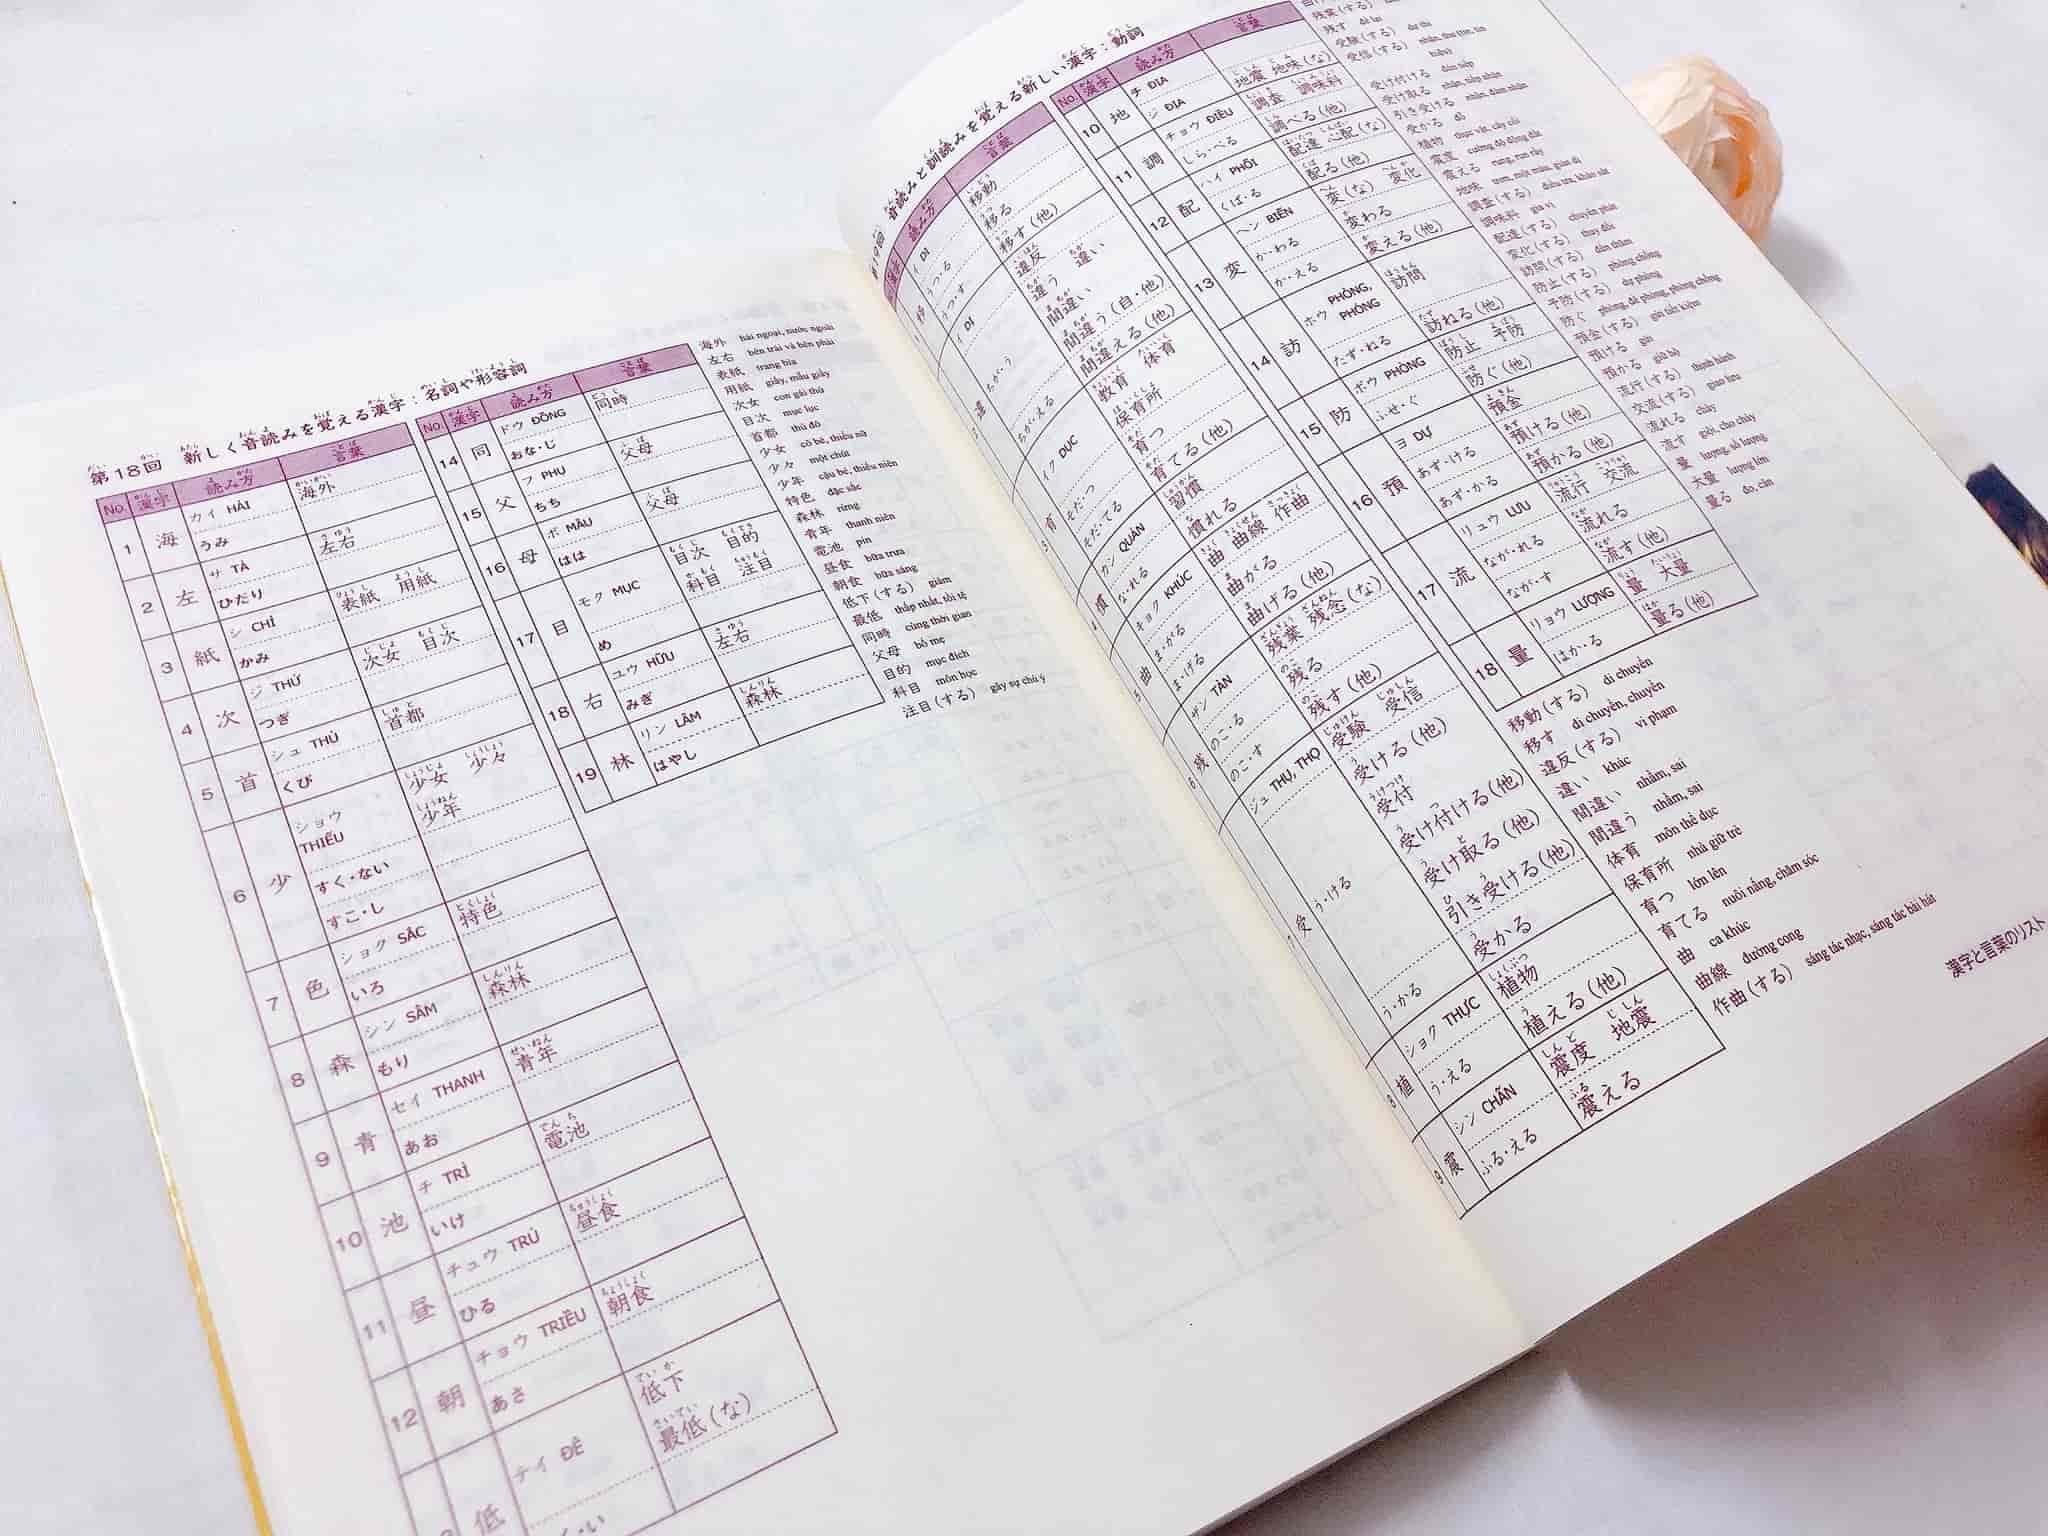 第18回 新しく音読みを覚える漢字：名詞や形容詞
No. 漢字 読み方 言葉
1 海 カイ HẢI 海外
うみ
2 左 サ TẢ 左右
ひだり
3 紙 シ CHỈ 表紙 用紙
かみ
4 次 ジ THỨ 次女 目次
つぎ
5 首 シュ THỦ 首都
くび
6 少 ショウ THIẾU 少女 少々
少年
すく・ない
すこ・し
7 色 ショク SẮC 特色
いろ
8 森 シン SÂM 森林
もり
9 青 セイ THANH 青年
あお
10 池 チ TRÌ 電池
いけ
11 昼 チュウ TRÚ 昼食
ひる
12 朝 チョウ TRIỀU 朝食
あさ
低 テイ ĐÊ 低下
最低(な)
No. 漢字 読み方 言葉
14 同 ドウ ĐỒNG 同時
おな・じ
15 父 フ PHỤ 父母
ちち
16 母 ボ MẪU 父母
はは
17 目 モク MỤC 目次 目的
科目 注目
め
18 右 ユウ HỮU 左右
みぎ
19 林 リン LÂM 森林
はやし
海外 hải ngoại, nước ngoài
左右 bên trái và bên phải
表紙 trang bìa
用紙 giấy, mẫu giấy
次女 con gái thứ
目次 mục lục
首都 thủ đô
少女 cô bé, thiếu nữ
少々 một chút
少年 cậu bé, thiếu niên
特色 đặc sắc
森林 rừng
青年 thanh niên
電池 pin
昼食 bữa trưa
朝食 bữa sáng
低下(する) giảm
最低 thấp nhất, tồi tệ
同時 cùng thời gian
父母 bố mẹ
目的 mục đích
科目 môn học
注目(する) gây sự chú ý
音読みと訓読みを覚える新しい漢字：動詞
漢字 読み方 言葉
イ DI 移動
うつ・る 移る
うつ・す 移す(他)
イ 違反
ちが・う 違う 違い
間違い
間違う(自・他)
ちが・える 間違える(他)
3 育 イク DỤC 教育 体育
保育所
そだ・つ 育つ
そだ・てる 育てる(他)
4 慣 カン QUÁN 習慣
な・れる 慣れる
5 曲 キョク KHÚC 曲 曲線 作曲
ま・がる 曲がる
ま・げる 曲げる(他)
6 残 ザン TÀN 残業 残念(な)
のこ・る 残る
のこ・す 残す(他)
受 ジュ THỤ, THỌ 受験 受信
う・ける 受ける(他)
受付
受け付ける(他)
受け取る(他)
引き受ける(他)
う・かる 受かる
8 植 ショク THỰC 植物
う・える 植える(他)
9 震 シン CHẤN 震度 地震
ふる・える 震える
No. 漢字 読み方 言葉
10 地 チ ĐỊA
ジ ĐỊA 地震 地味(な)
11 調 チョウ ĐIỀU 調査 調味料
しら・べる 調べる(他)
12 配 ハイ PHỐI 配達 心配(な)
くば・る 配る(他)
13 変 ヘン BIẾN 変(な) 変化
か・わる 変わる
か・える 変える(他)
14 訪 ホウ PHỎNG, PHÓNG 訪問
たず・ねる 訪ねる(他)
15 防 ボウ PHÒNG 防止 予防
ふせ・ぐ 防ぐ(他)
16 預 ヨ DỰ 預金
あず・ける 預ける(他)
あず・かる 預かる(他)
17 流 リュウ LƯU 流行 交流
なが・れる 流れる
なが・す 流す(他)
18 量 リョウ LƯỢNG 量 大量
はか・る 量る(他)
移動(する) di chuyển
移す di chuyển, chuyển
違反(する) vi phạm
違い khác
間違い nhầm, sai
間違う nhầm, sai
体育 môn thể dục
保育所 nhà giữ trẻ
育つ lớn lên
育てる nuôi nấng, chăm sóc
曲 ca khúc
曲線 đường cong
作曲(する) sáng tác nhạc, sáng tác bài hát
残業(する)
残す để lại
受験(する) dự thi
受信(する) nhận, thu
受け付ける đón tiếp
受け取る nhận, tiếp nhận
引き受ける nhận, đảm nhận
受かる đỗ
植物 thực vật, cây cối
震度 cường độ động đất
震える rung, run rẩy
地味 trơn, một màu, giản dị
調査(する) điều tra, khảo sát
調味料 gia vị
配達(する) chuyển phát
変化(する) thay đổi
訪問(する) đến thăm
防止(する) phòng chống
予防(する) dự phòng
防ぐ phòng, đề phòng, phòng chống
預金(する) gửi tiết kiệm
預ける gửi
預かる giữ hộ
流行(する) thịnh hành
交流(する) giao lưu
流れる chảy
流す giội, cho chảy
量 lượng, số lượng
大量 lượng lớn
量る đo, cân
漢字と言葉のリスト